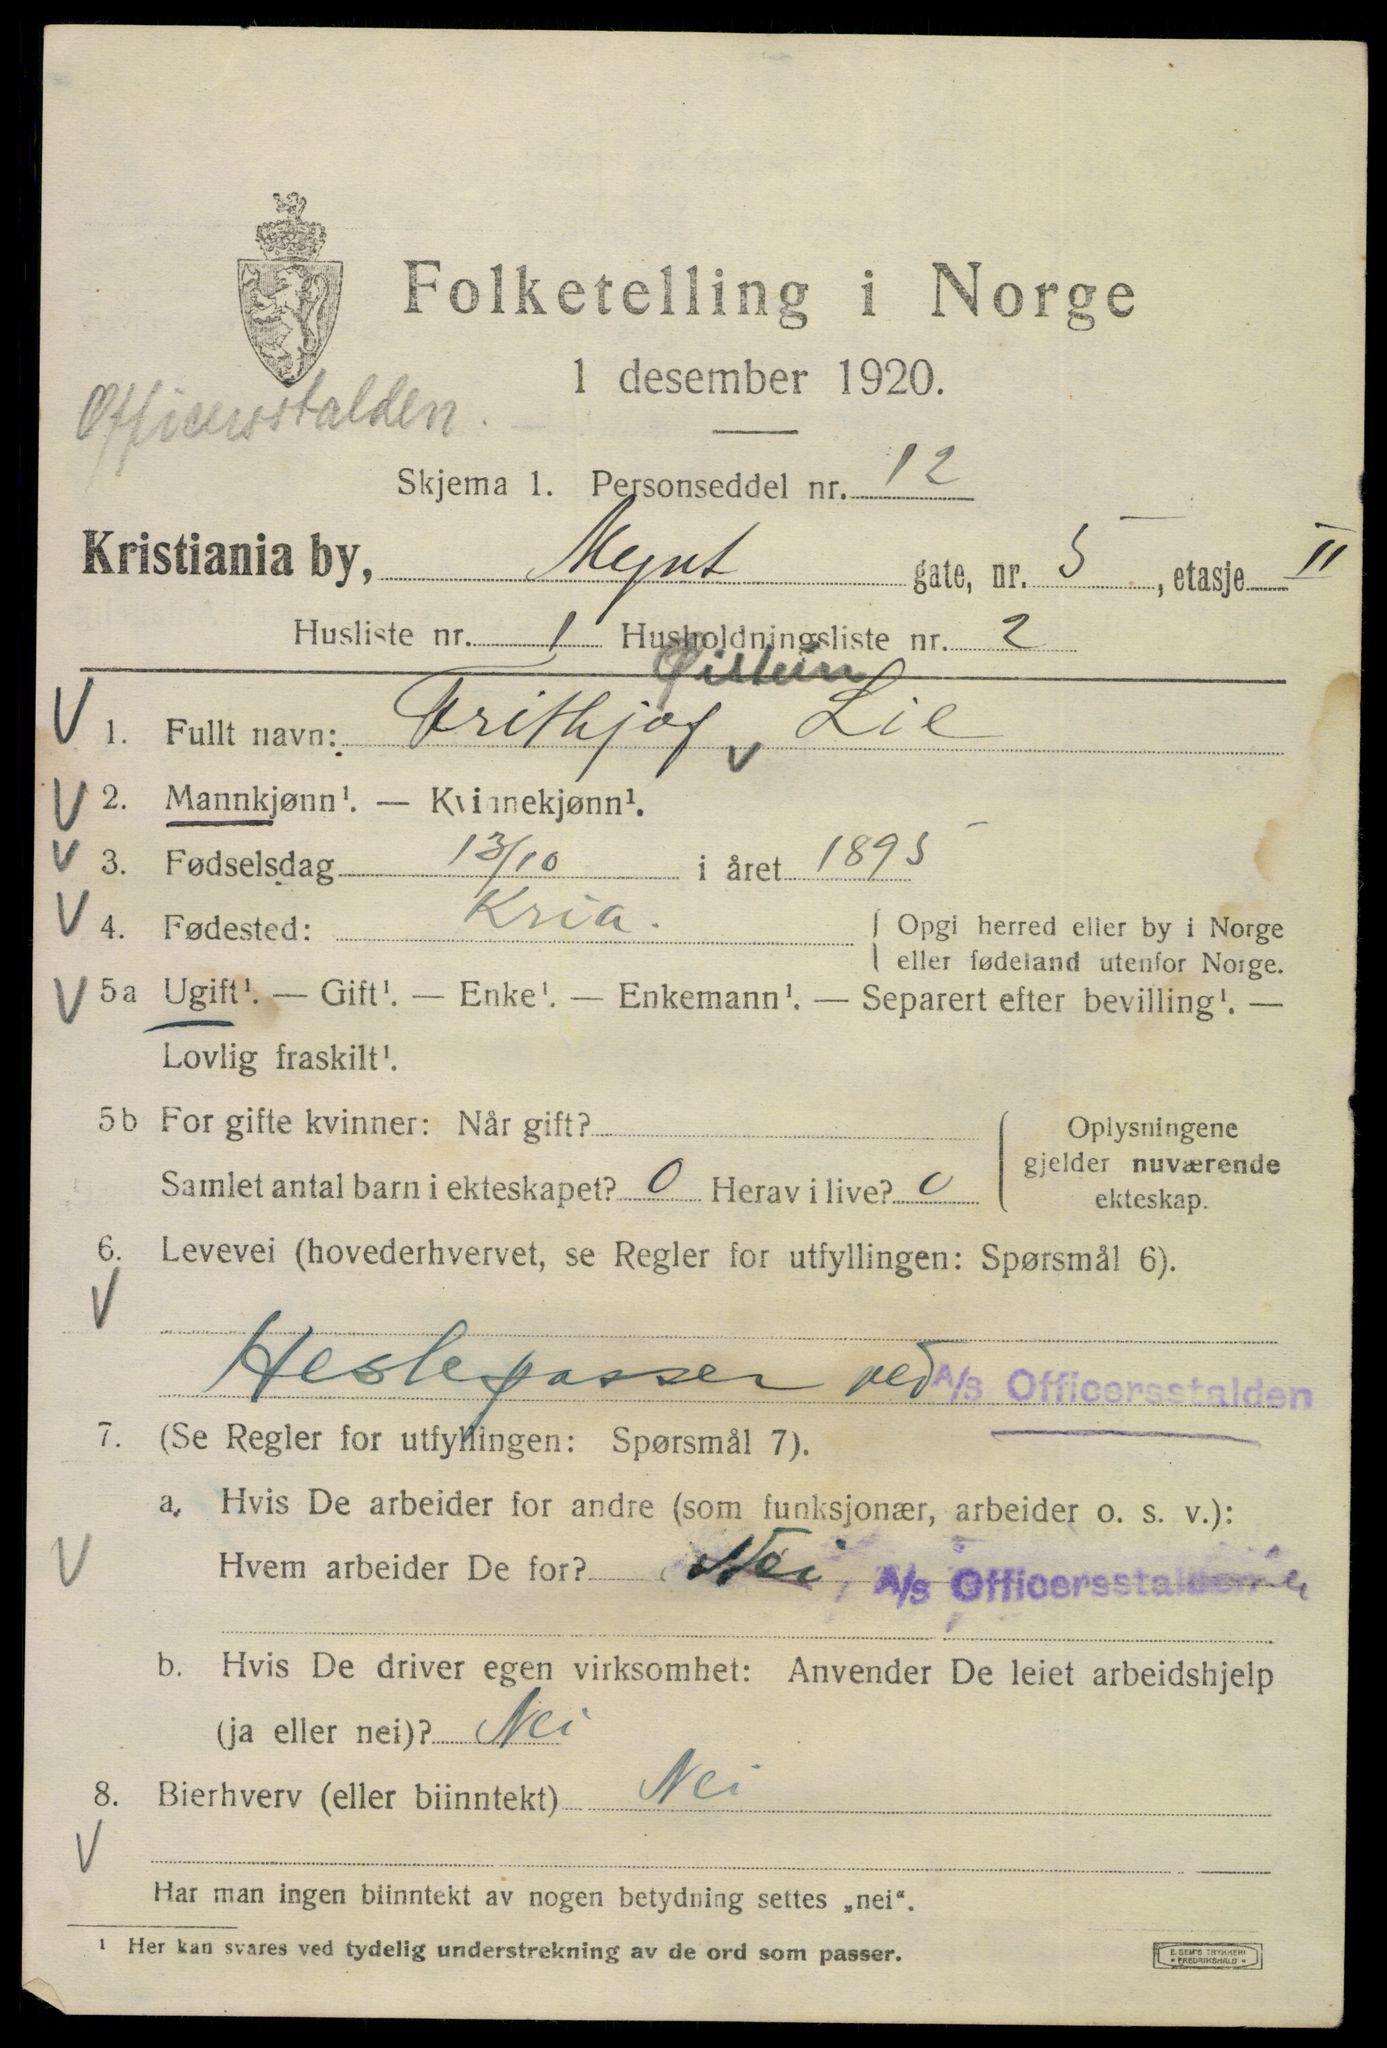 Folketelling i Norge
1 desember 1920.
Officersstalden.
Skjema 1. Personseddel nr. 12
Kristiania by, Mynt gate, nr. 5, etasje II
Husliste nr. 1 Husholdningsliste nr. 2
Øistein
1. Fullt navn: Frithjof Lie
2. Mannkjønn¹. — Kvinnekjønn¹.
3. Fødselsdag 13/10 i året 1895
4. Fødested: Kria. Opgi herred eller by i Norge
eller fødeland utenfor Norge.
5a Ugift¹. — Gift¹. — Enke¹. — Enkemann¹. — Separert efter bevilling¹. —
Lovlig fraskilt¹.
5b For gifte kvinner: Når gift? Oplysningene
gjelder nuværende
Samlet antal barn i ekteskapet? 0 Herav i live? 0 ekteskap.
6. Levevei (hovederhvervet, se Regler for utfyllingen: Spørsmål 6).
Hestepasser ved A/S Officersstalden
7. (Se Regler for utfyllingen: Spørsmål 7).
a. Hvis De arbeider for andre (som funksjonær, arbeider o. s. v.):
Hvem arbeider De for? Nei A/S Officersstalden
b. Hvis De driver egen virksomhet: Anvender De leiet arbeidshjelp
(ja eller nei)? Nei
8. Bierhverv (eller biinntekt) Nei
Har man ingen biinntekt av nogen betydning settes „nei“.
¹ Her kan svares ved tydelig understrekning av de ord som passer.
E. SEM'S TRYKKERI
FREDRIKSHALD